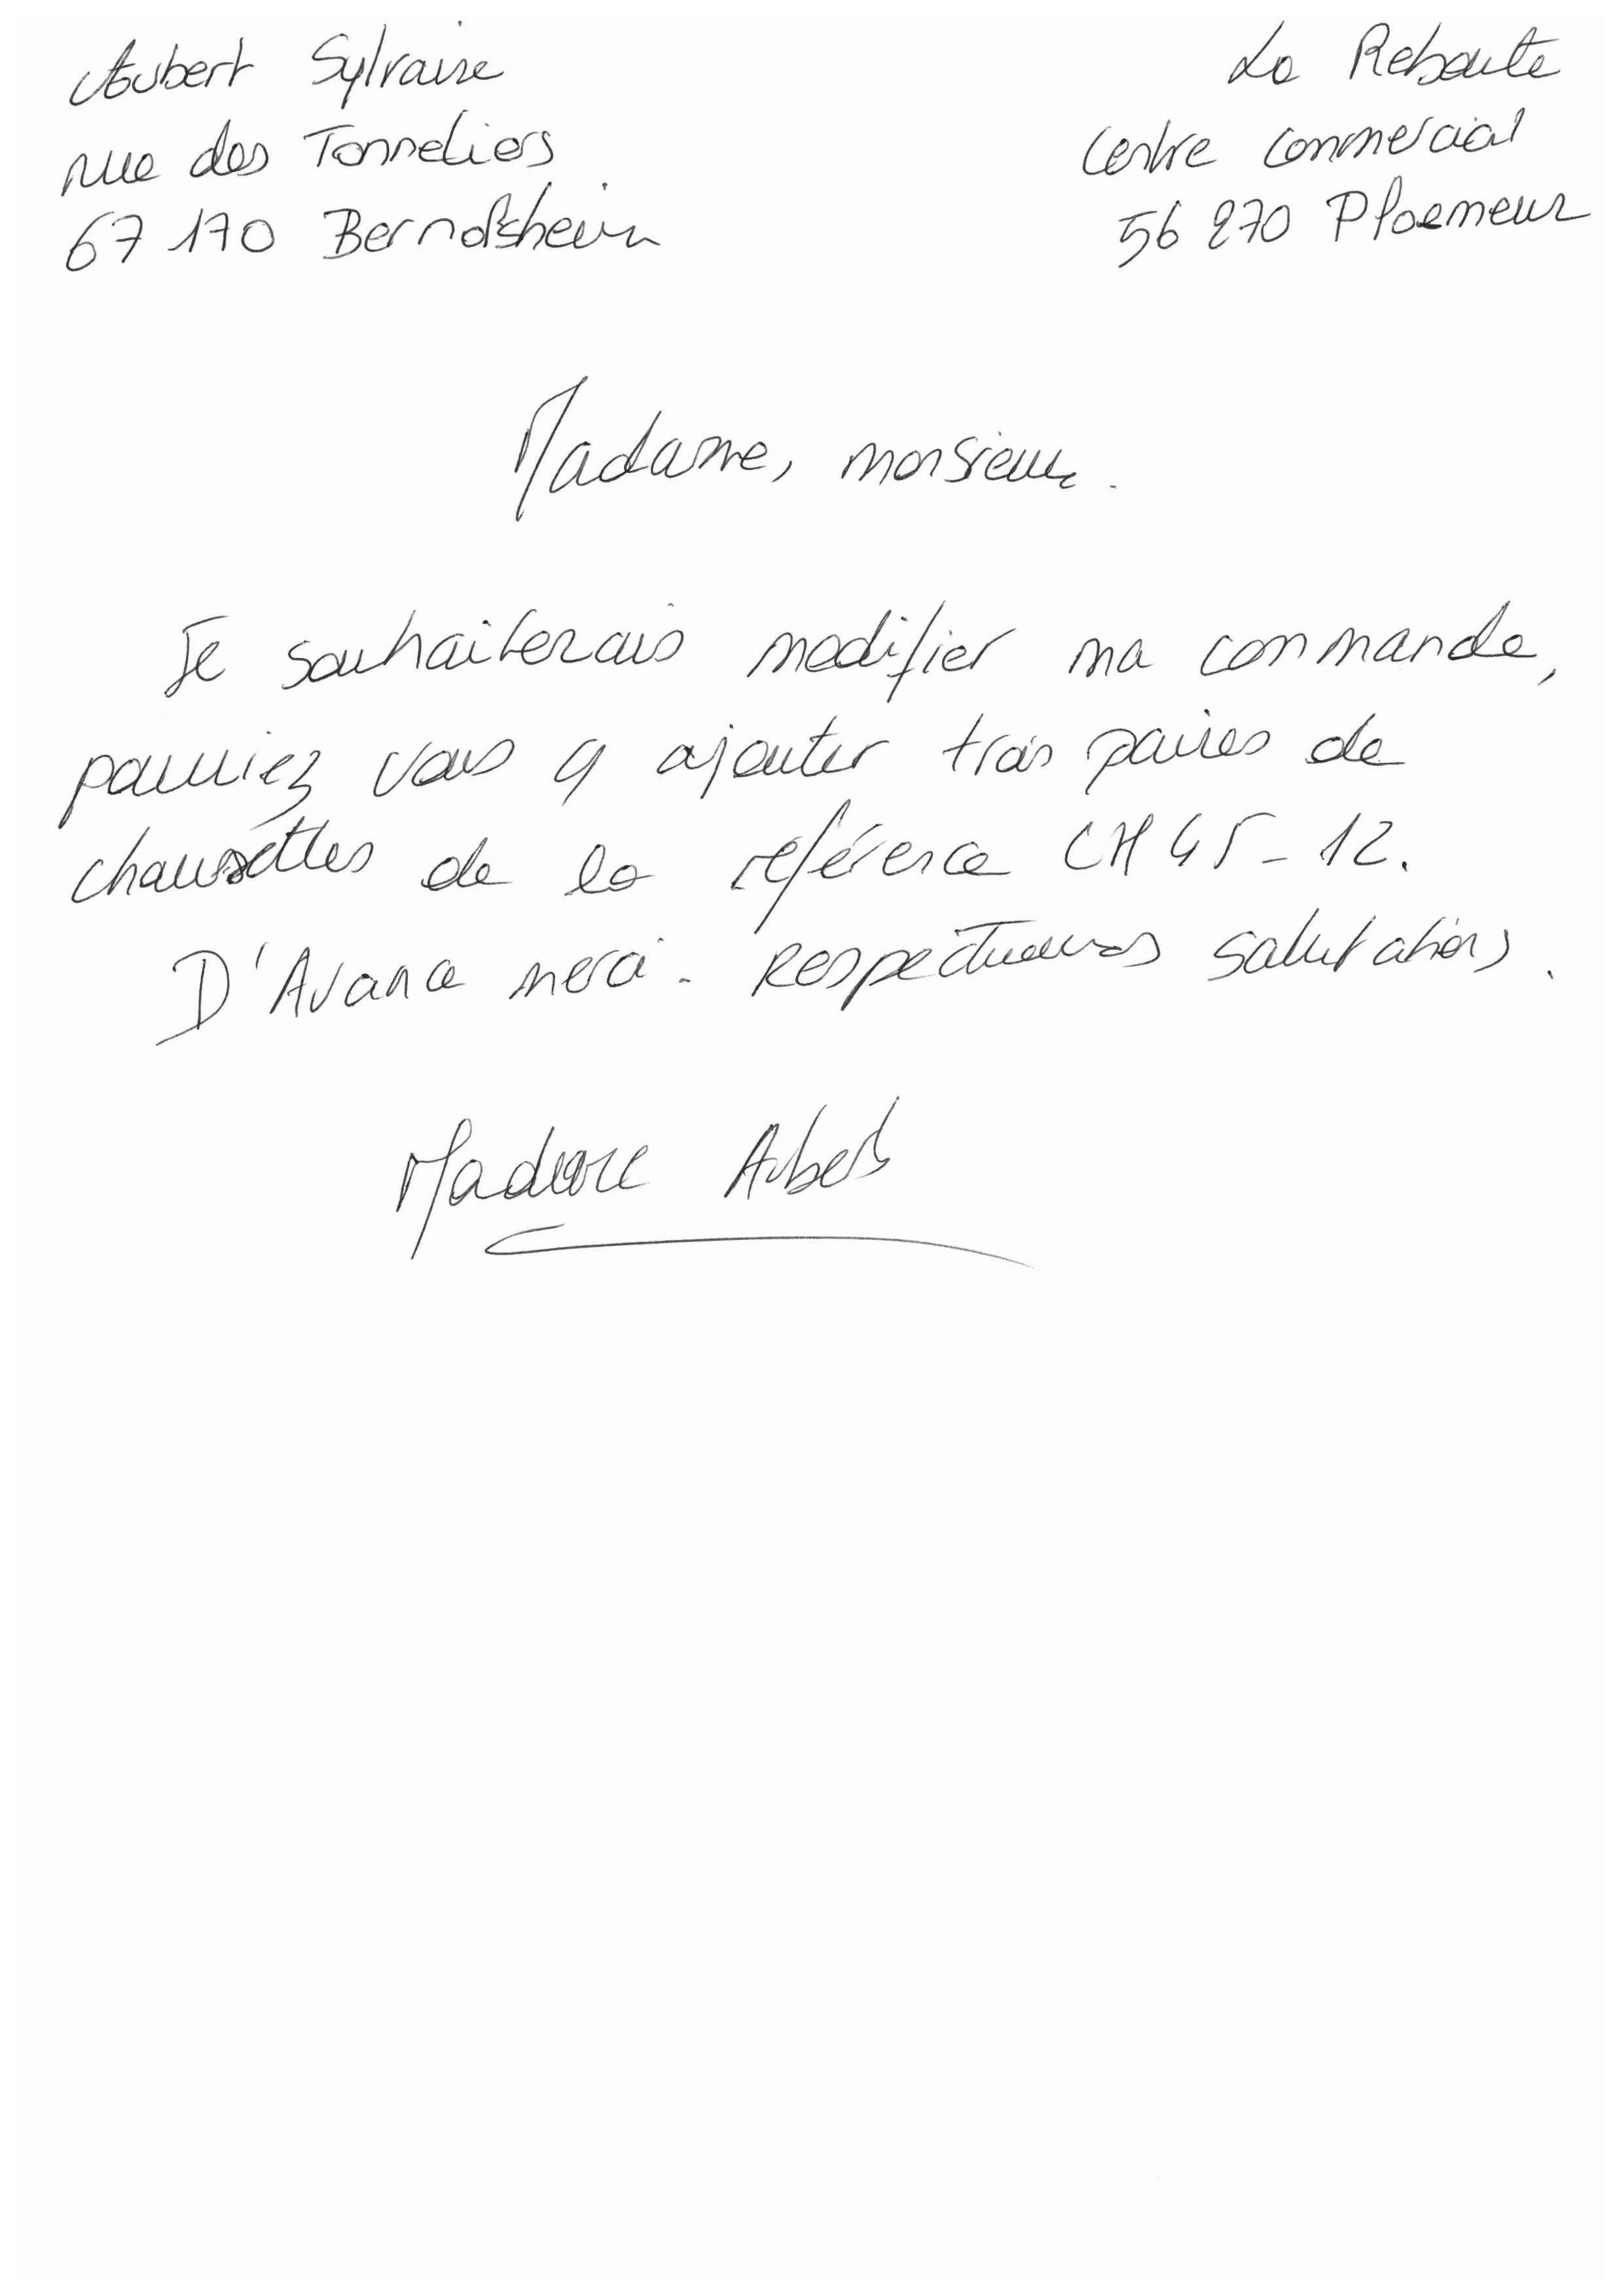 Aubert Sylvaine
rue des Tonneliers
67 170 Bernolsheim
La Reboute
Centre Commercial
56 270 Ploemeur
Madame, monsieur.
Je souhaiterais modifier ma commande,
pourriez vous y ajouter trois paires de
chaussettes de la référence CH45-12.
D'Avance merci. Respectueuses salutations.
Madame Aubert